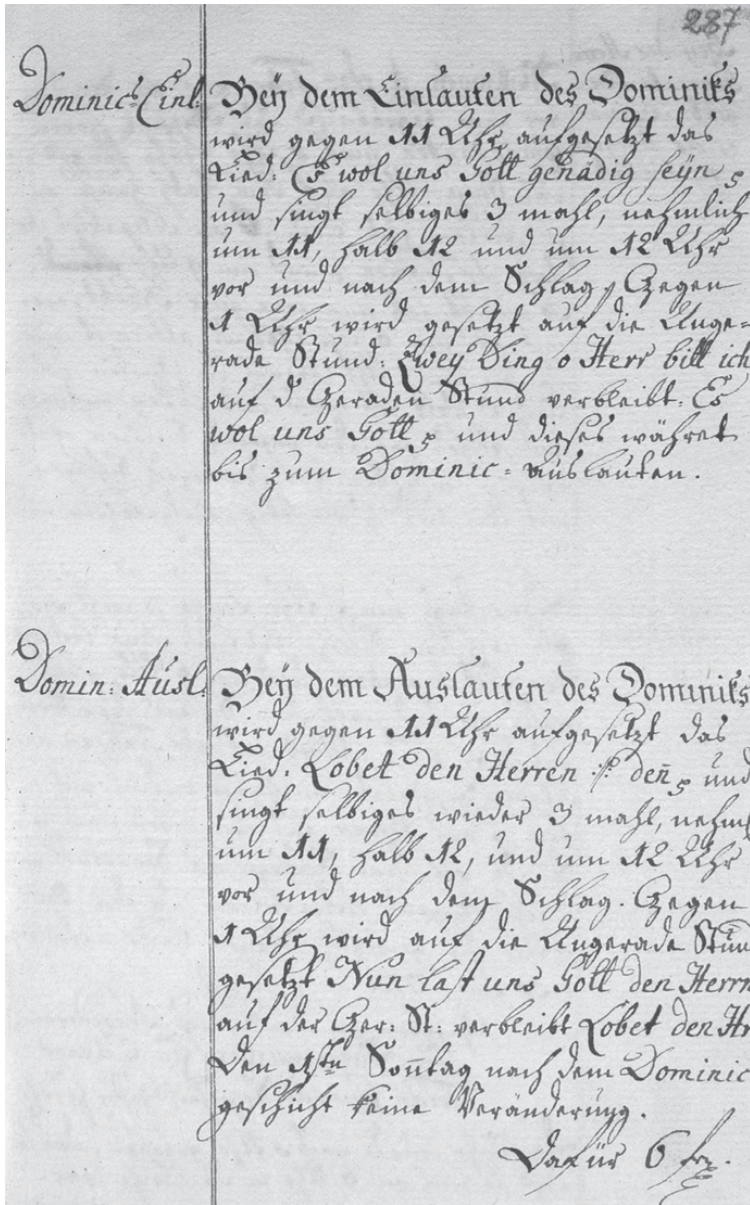 287
Dominics Einl:
Bey dem Einlauten des Dominiks
wird gegen 11 Uhr aufgesetzt das
Lied: Es wol uns Gott genädig seyn
und singt selbiges 3 mahl, nehmlich
um 11, halb 12 und um 12 Uhr
vor und nach dem Schlag, Gegen
1 Uhr wird gesetzt auf die Unge=
rade Stund: Zwey Ding o Herr bitt ich
auf d Geraden Stund verbleibt: Es
wol uns Gott und dieses währet
bis zum Dominic=auslauten.
Domin: Ausl:
Bey dem Auslauten des Dominiks
wird gegen 11 Uhr aufgesetzt das
Lied: Lobet den Herren :/: den̄ und
singt selbiges wieder 3 mahl, nehml
um 11, halb 12, und um 12 Uhr
vor und nach dem Schlag. Gegen
1 Uhr wird auf die Ungerade Stun
gesetzt Nun last uns Gott den Herrn
auf der Ger: St: verbleibt Lobet den Hr
Den 1stn Son̄tag nach dem Dominic
geschicht keine Veränderung.
Dafür 6